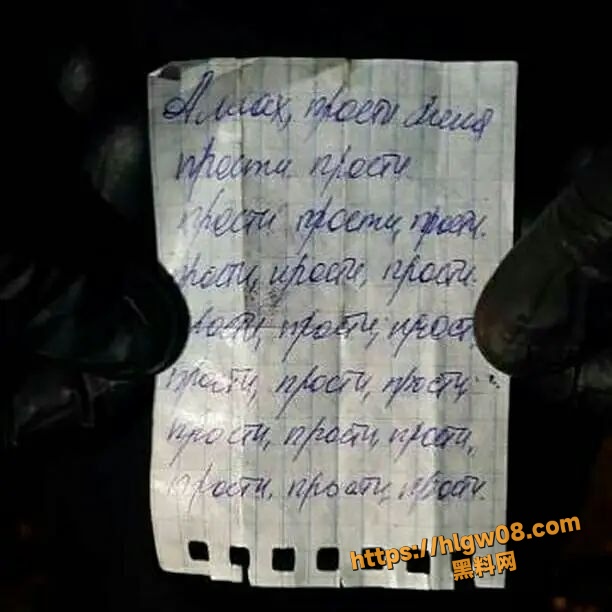 Аллах, прости меня
прости прости.
прости прости, прости.
прости, прости, прости.
прости, прости, прости
прости, прости, прости,
прости, прости, прости,
прости, прости, прости.
https://hlgw08.com
黑料网